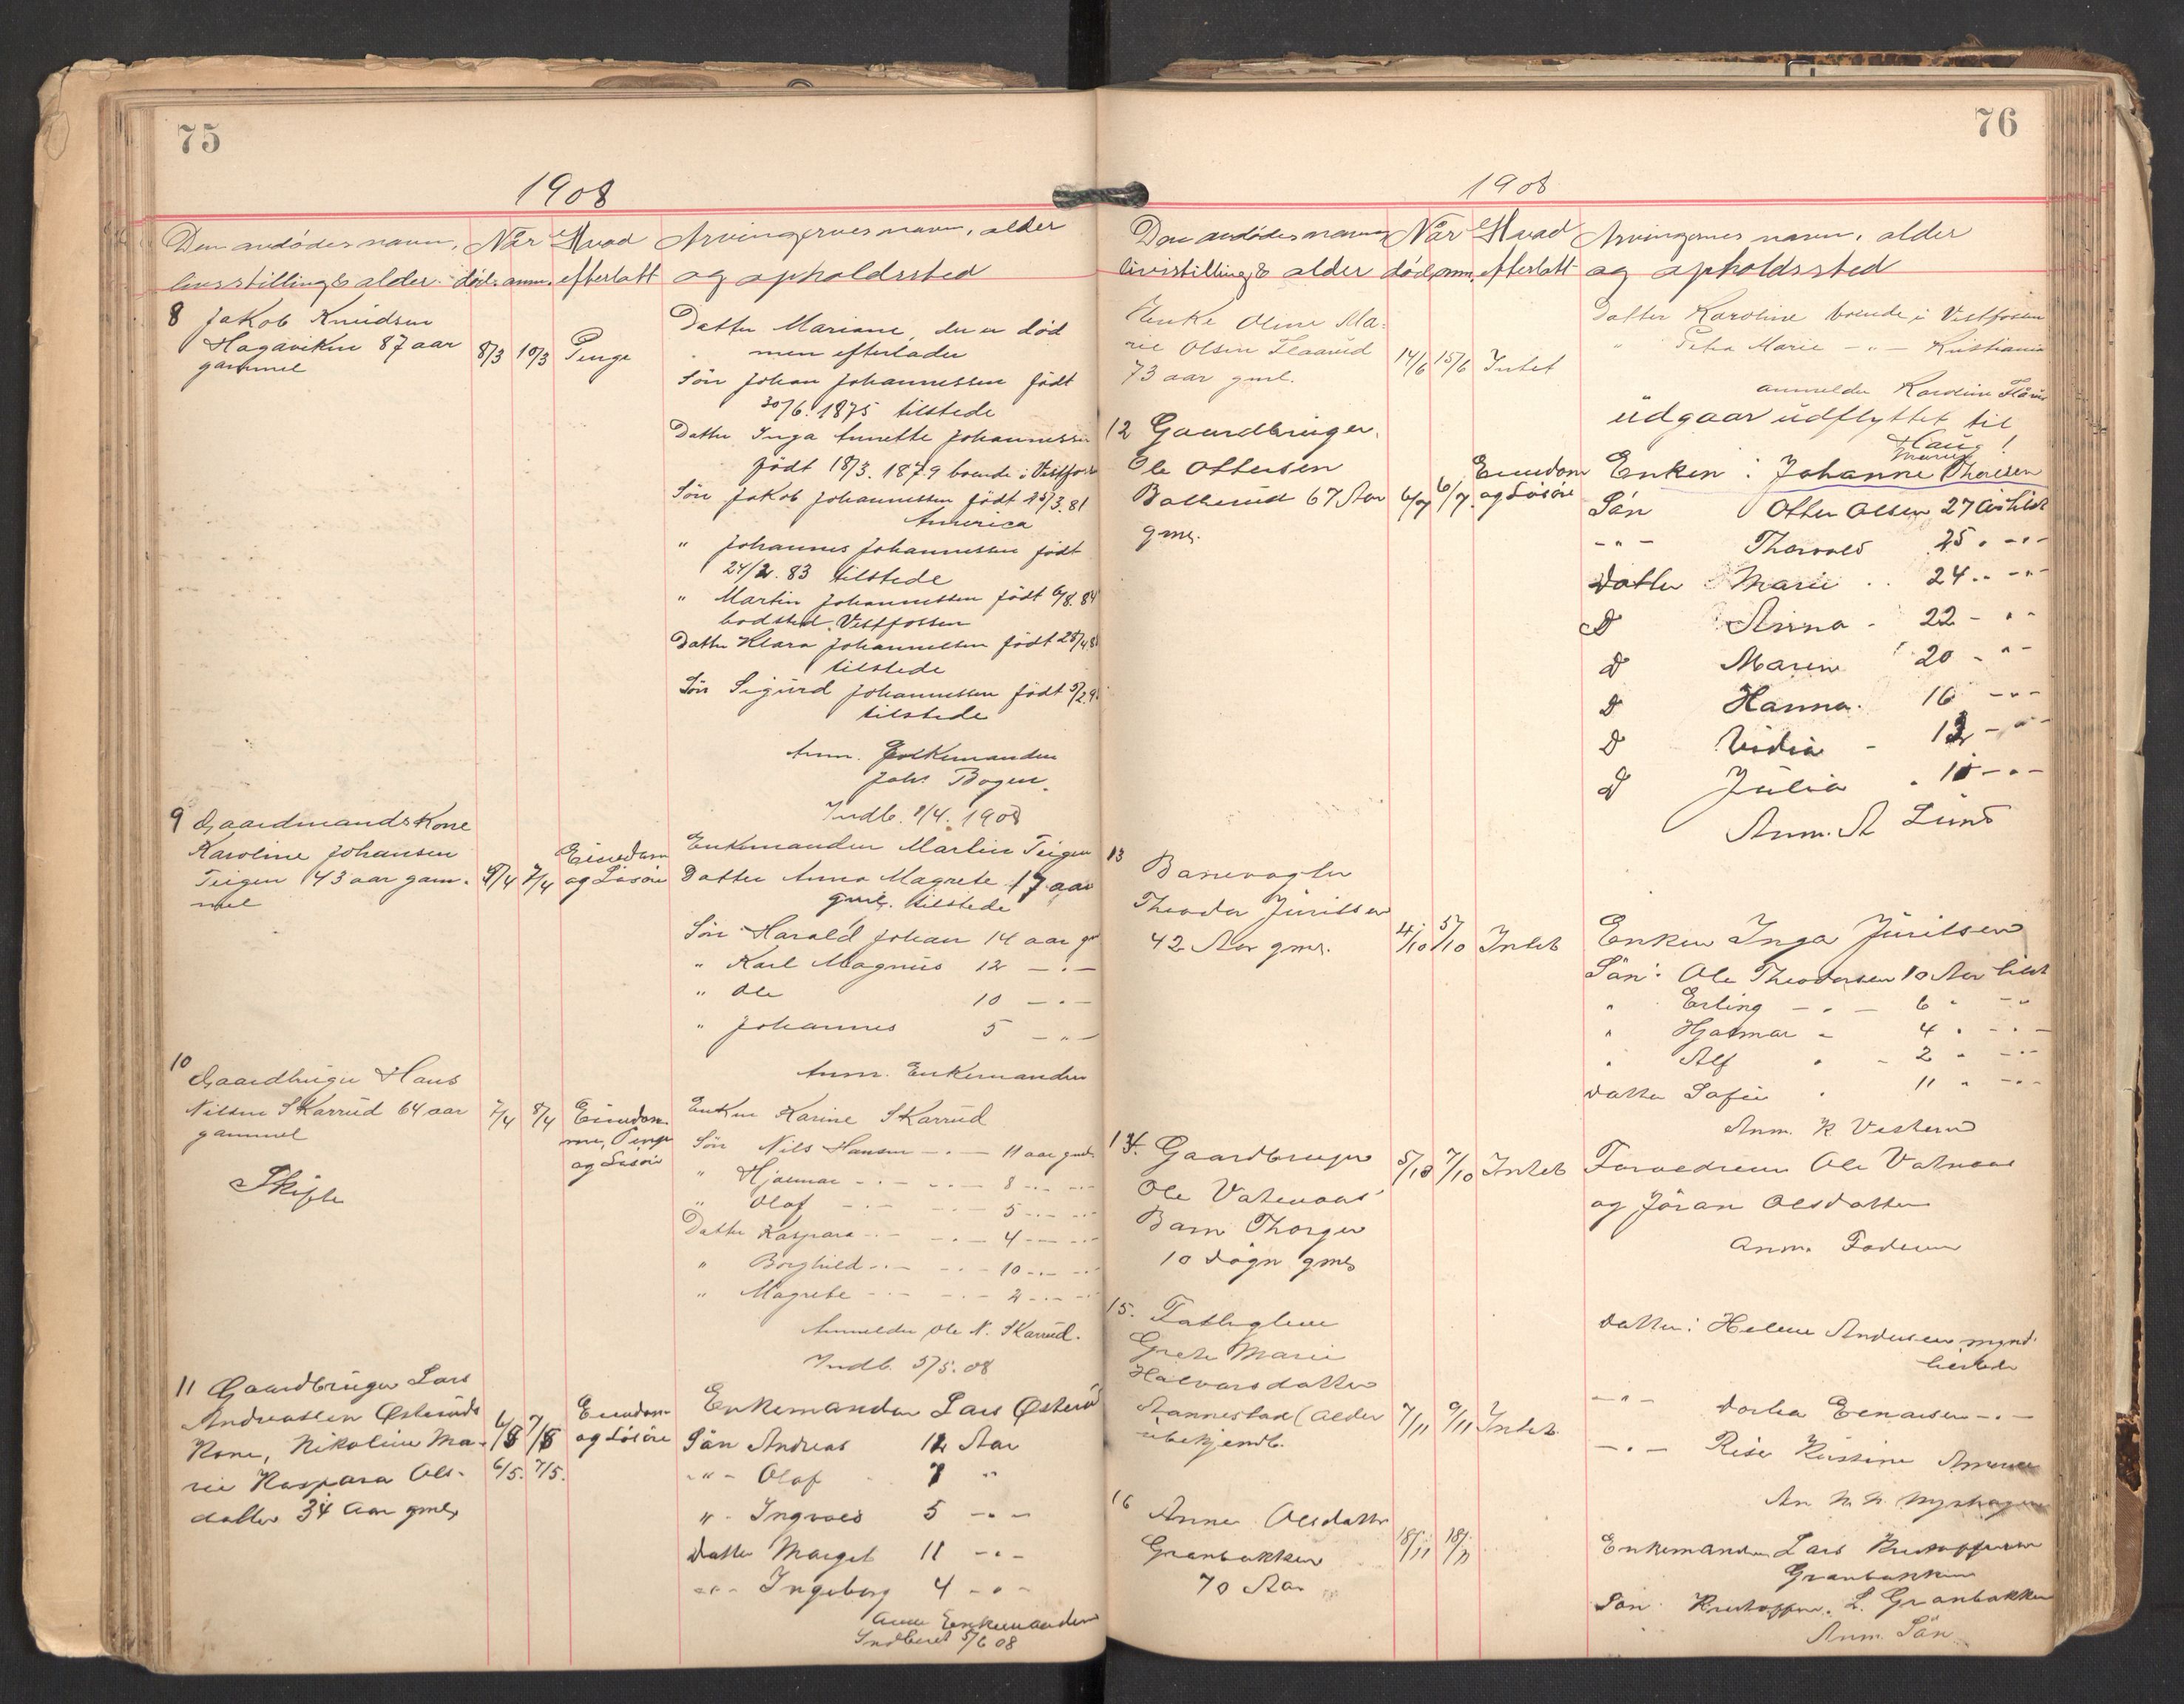 75
1908
Den avdødes navn, Når Hvad Arvingernes navn, alder
livsstilling & alder. död. anm. efterlatt og opholdssted
8 Jakob Knudsen
Hagaviken 87 aar
gammel
8/3 10/3 Penge
Datter Mariane, der er död
men efterlader
Sön Johan Johannessen födt
30/6. 1875 tilstede
Datter Inga Annette Johannessen
födt 18/3. 1879 boende i Vestfoss
Sön Jakob Johannessen födt 25/3. 81
America
" Johannes Johannessen födt
24/2. 83 tilstede
" Martin Johannessen födt 6/8. 84
bosted. Vestfossen
Datter Klara Johannessen födt 25/4
tilstede
Sön Sigurd Johannessen födt 5/2
tilstede
Anm. Enkemanden
Johs Bogen.
Indb. 8/4. 1908
9 Gaardmandskone
Karoline Johansen
Teigen 43 aar gam-
mel
7/4 Eiendom
og Lösöre
Enkemanden Martin Teigen
Datter Anna Magrete 17 aar
gml. tilstede
Sön Harald Johan 14 aar gml
" Karl Magnus 12 - " -
" Ole 10 - " -
" Johannes 5 - " -
Anm. Enkemanden
10 Gaardbruger Hans
Nilsen Skarrud 64 aar
gammel
Skifte
7/4 8/4 Eiendom-
me, Penge
og Lösöre
Enken Karine Skarrud
Sön Nils Hansen - " - 11 aar gml.
" Hjalmar - " - - " - 8 - " -
" Olaf - " - - " - 5 - " -
Datter Kaspara - " - - " - 4 - " -
" Borghild - " - - " - 10 - " -
" Magrete - " - - " - 2 - " -
Anmelder Ole N. Skarrud.
Indb. 5/5. 08
11 Gaardbruger Lars
Andreassen Østeruds
Kone, Nikoline Ma-
rie Kaspara Ols-
datter 34 Aar gml.
6/8 7/8
6/5. 7/5.
Eiendom
og Lösöre
Enkemanden Lars Østerud
Sön Andreas 12 Aar
- " - Olaf 7 "
" - Ingvald 5 - " -
Datter Margit 11 - " -
- " - Ingeborg 4 - " -
Anm Enkemanden
Indberet 5/6 08
76
1908
Den avdødes navn Når Hvad Arvingernes navn, alder
livsstilling & alder död. anm. efterlatt og opholdssted
Enke Oline Ma-
rie Olsen Flaarud
73 aar gml.
14/6 15/6 Intet
Datter Karoline boende i Vestfossen
" Petra Marie - " - Kristiania
anmelder Karoline
udgaar udflyttet til
Haug!
12 Gaardbruger
Ole Ottersen
Bollerud 67 Aar
gml.
6/7 6/7. Eiendom
og Lösöre
Enken: Johanne Thoresen
Sön Otter Olsen 27 Aar tilst
- " - Thorvald 25 " - " -
Datter Marie " 24 " - " -
D Anna - 22 - " -
D Maren 20 - " -
D Hanna. 16 - " -
D Lidia - 13 - " -
D Julia " 10 - " -
Anm. A Lund
13 Banevogter
Theodor Juritsen
42 Aar gml.
4/10 5/10 Intet
Enken Inga Juritsen
Sön: Ole Theodorsen 10 Aar tilst
" Erling - " - 6 " - "
" Hjalmar - 4 " - " -
" Alf " - 2 " - " -
Datter Sofie " 11 " - " -
Anm. K Vestern
14. Gaardbruger
Ole Vatnaas
Barn Thorger
10 Dögn gml
5/10 7/10 Intet
Forældrene Ole Vatnaas
og Jöran Olsdatter
Anm. Faderen
15. Fattiglem
Grete Marie
Halvorsdatter
Stannestad (Alder
ubekjendt.
7/11 9/11 Intet
Datter: Helene Andersen mynd.
tilstede
- " - Dortea Einarsen - " -
- " - Kristine Amerika
16 Anne Olsdatter
Granbakken
70 Aar
18/11
Enkemanden Lars Kristoffersen
Granbakken
Sön Kristoffer. L. Granbakken
Anm. Sön